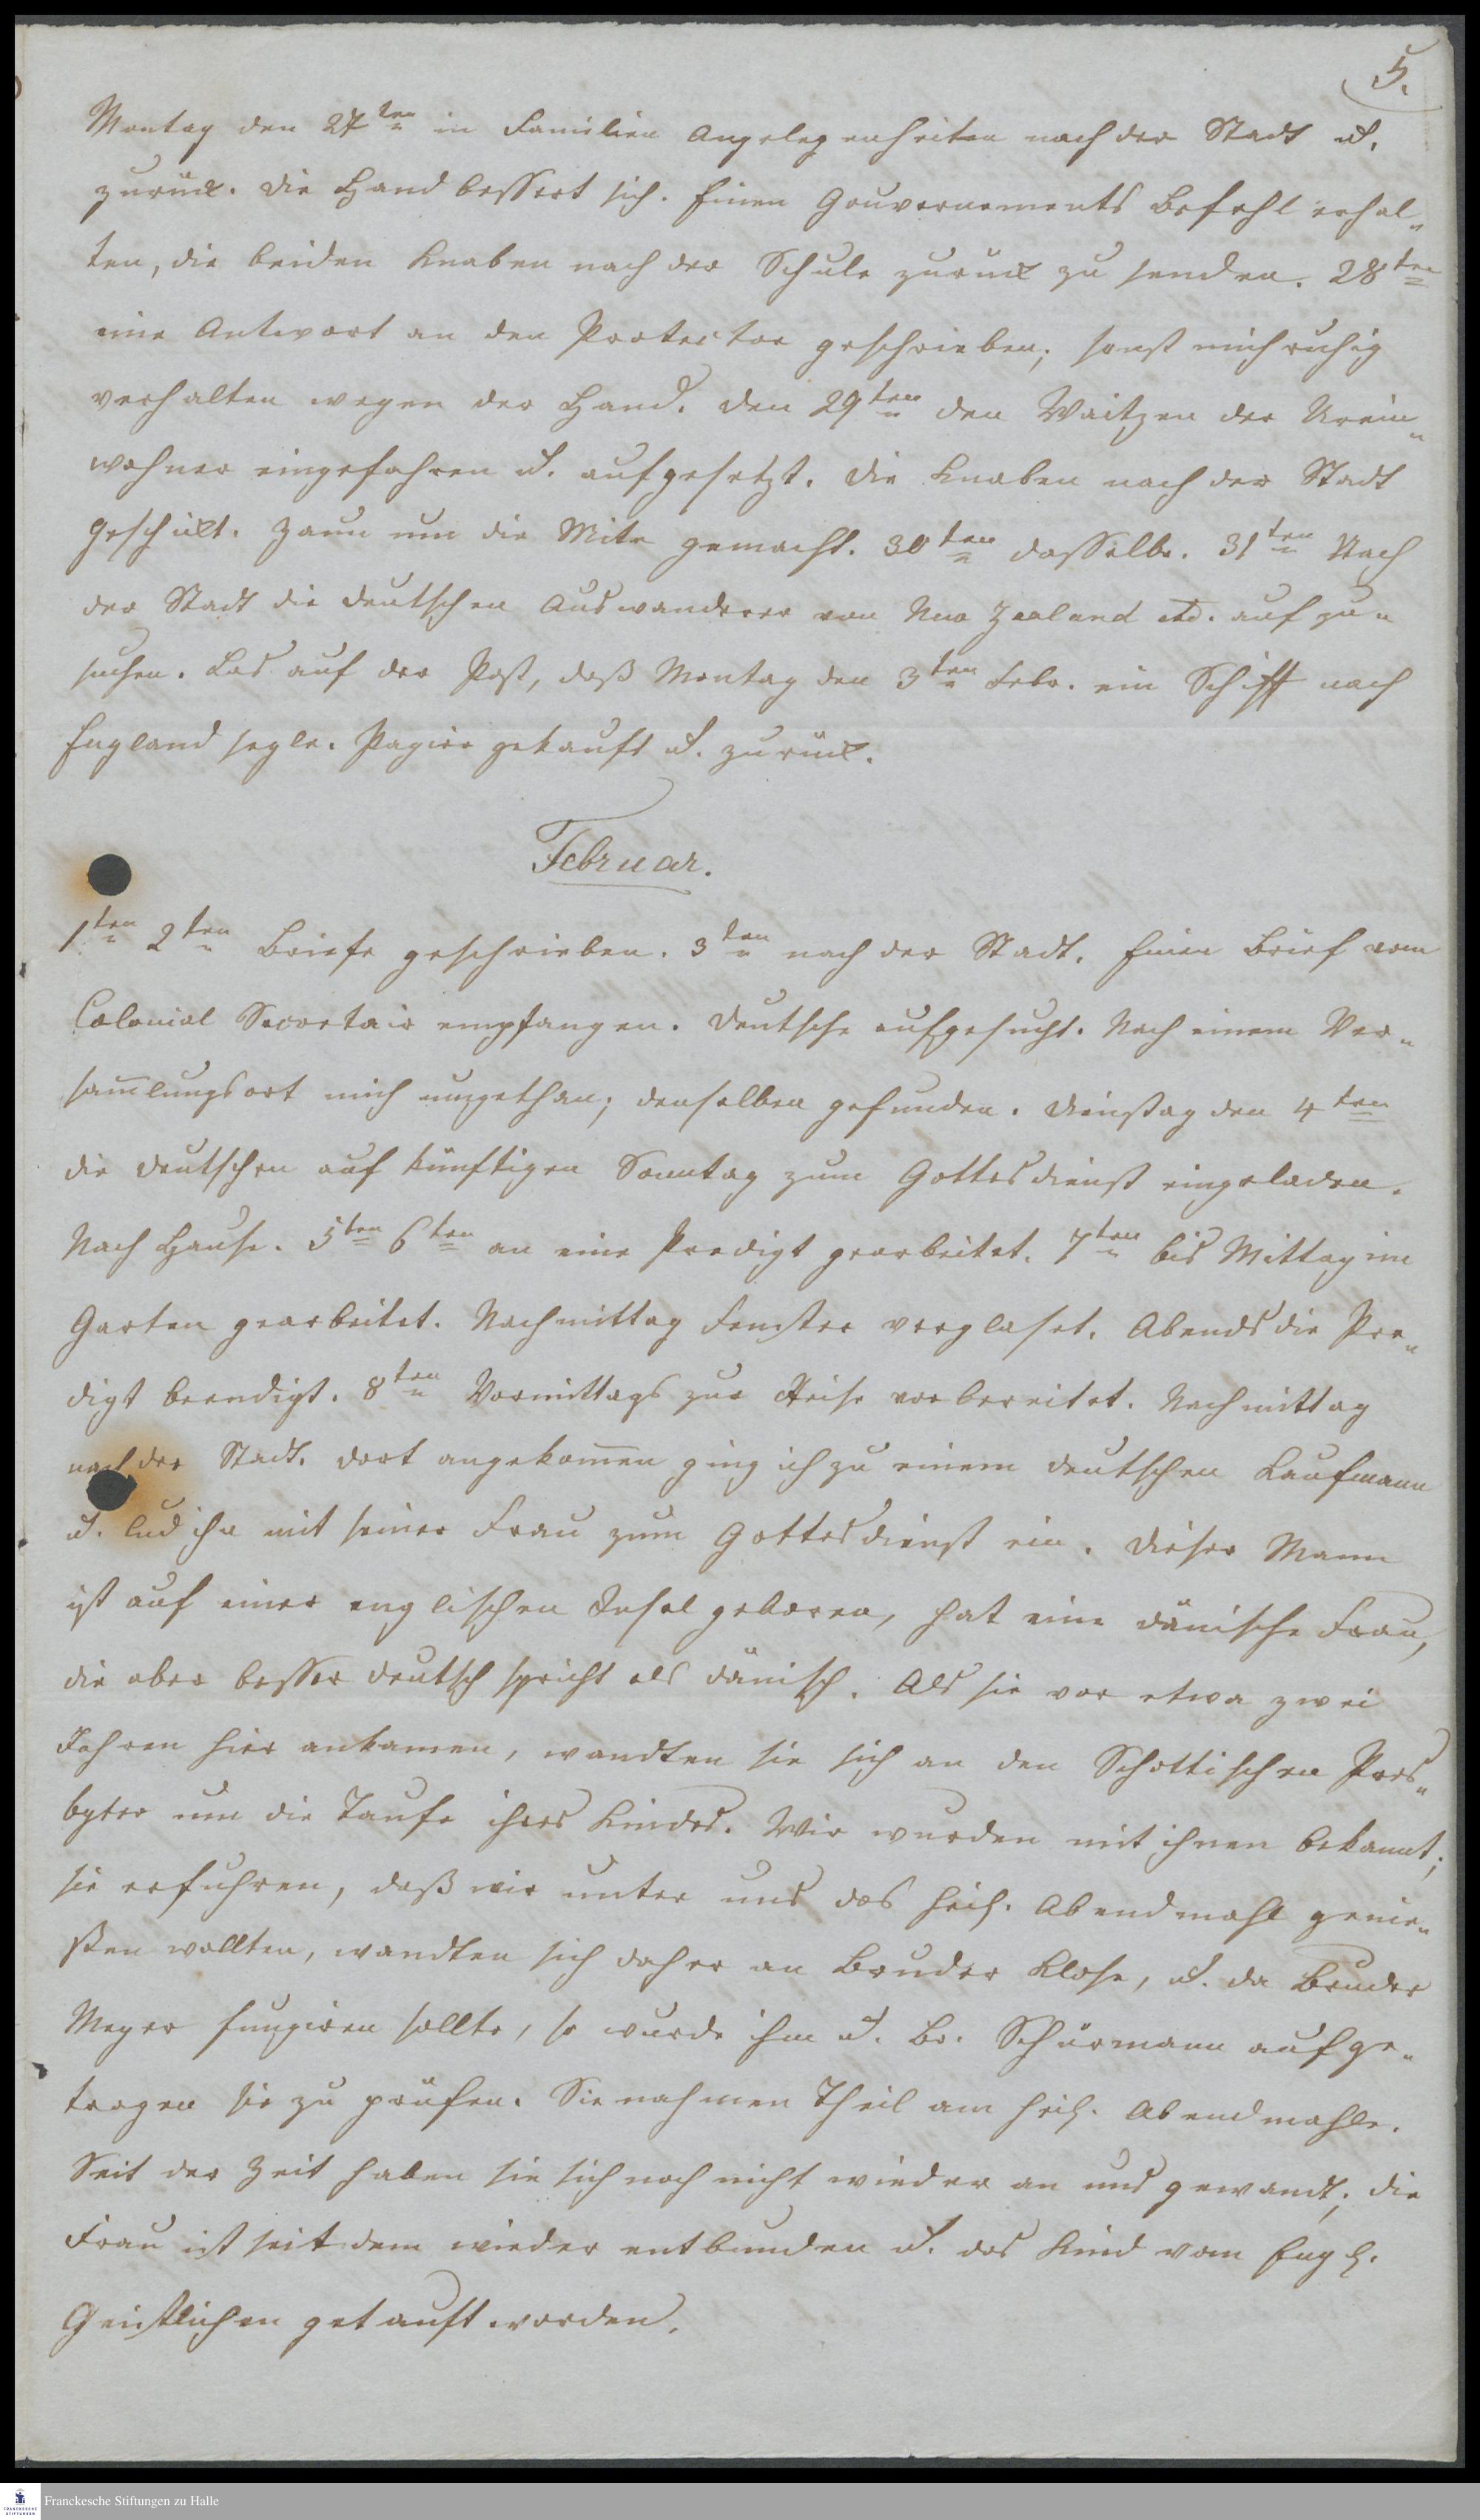 5.
Montag den 27ten in Familien Angelegenheiten nach der Stadt u.
zurück. Die Hand bessert sich. Einen Gouvernements Befehl erhal-
ten, die beiden Knaben nach der Schule zurück zu senden. 28ten
eine Antwort an den Protector geschrieben; sonst mich ruhig
verhalten wegen der Hand. Den 29ten den Waitzen der Urein-
wohner eingefahren u. aufgesetzt. Die Knaben nach der Stadt
geschickt. Zaun um die Mite gemacht. 30ten dasselbe. 31ten Nach
der Stadt die deutschen Auswanderer von New Zealand etc. aufzu-
suchen. Las auf der Post, daß Montag den 3ten Febr. ein Schiff nach
England segle. Papier gekauft u. zurück.
Februar.
1ten 2ten Briefe geschrieben. 3ten nach der Stadt. Einen Brief vom
Colonial Secretair empfangen. Deutsche aufgesucht. Nach einem Ver-
sam̅lungsort mich umgethan; denselben gefunden. Dienstag den 4ten
die Deutschen auf künftigen Sonntag zum Gottesdienst eingeladen.
Nach Hause. 5ten 6ten an eine Predigt gearbeitet. 7ten bis Mittag im
Garten gearbeitet. Nachmittag Fenster verglaset. Abends die Pre-
digt beendigt. 8ten Vormittags zur Reise vorbereitet. Nachmittag
nach der Stadt. Dort angekom̅en ging ich zu einem deutschen Kaufmann
u. lud ihn mit seiner Frau zum Gottesdienst ein. Dieser Mann
ist auf einer englischen Insel geboren, hat eine dänische Frau,
die aber besser deutsch spricht als dänisch. Als sie vor etwa zwei
Jahren hier ankamen, wandten sie sich an den Schottischen Pres-
byter um die Taufe ihres Kindes. Wir wurden mit ihnen bekannt;
sie erfuhren, daß wir unter uns das heil. Abendmahl genie-
ßen wollten, wandten sich daher an Bruder Klose, u. da Bruder
Meyer fungiren sollte, so wurde ihm u. Br. Schürmann aufge-
tragen sie zu prüfen. Sie nahmen Theil am heil. Abendmahle.
Seit der Zeit haben sie sich noch nicht wieder an uns gewandt; die
Frau ist seitdem wieder entbunden u. das Kind vom Engl.
Geistlichen getauft worden.
Franckesche Stiftungen zu Halle